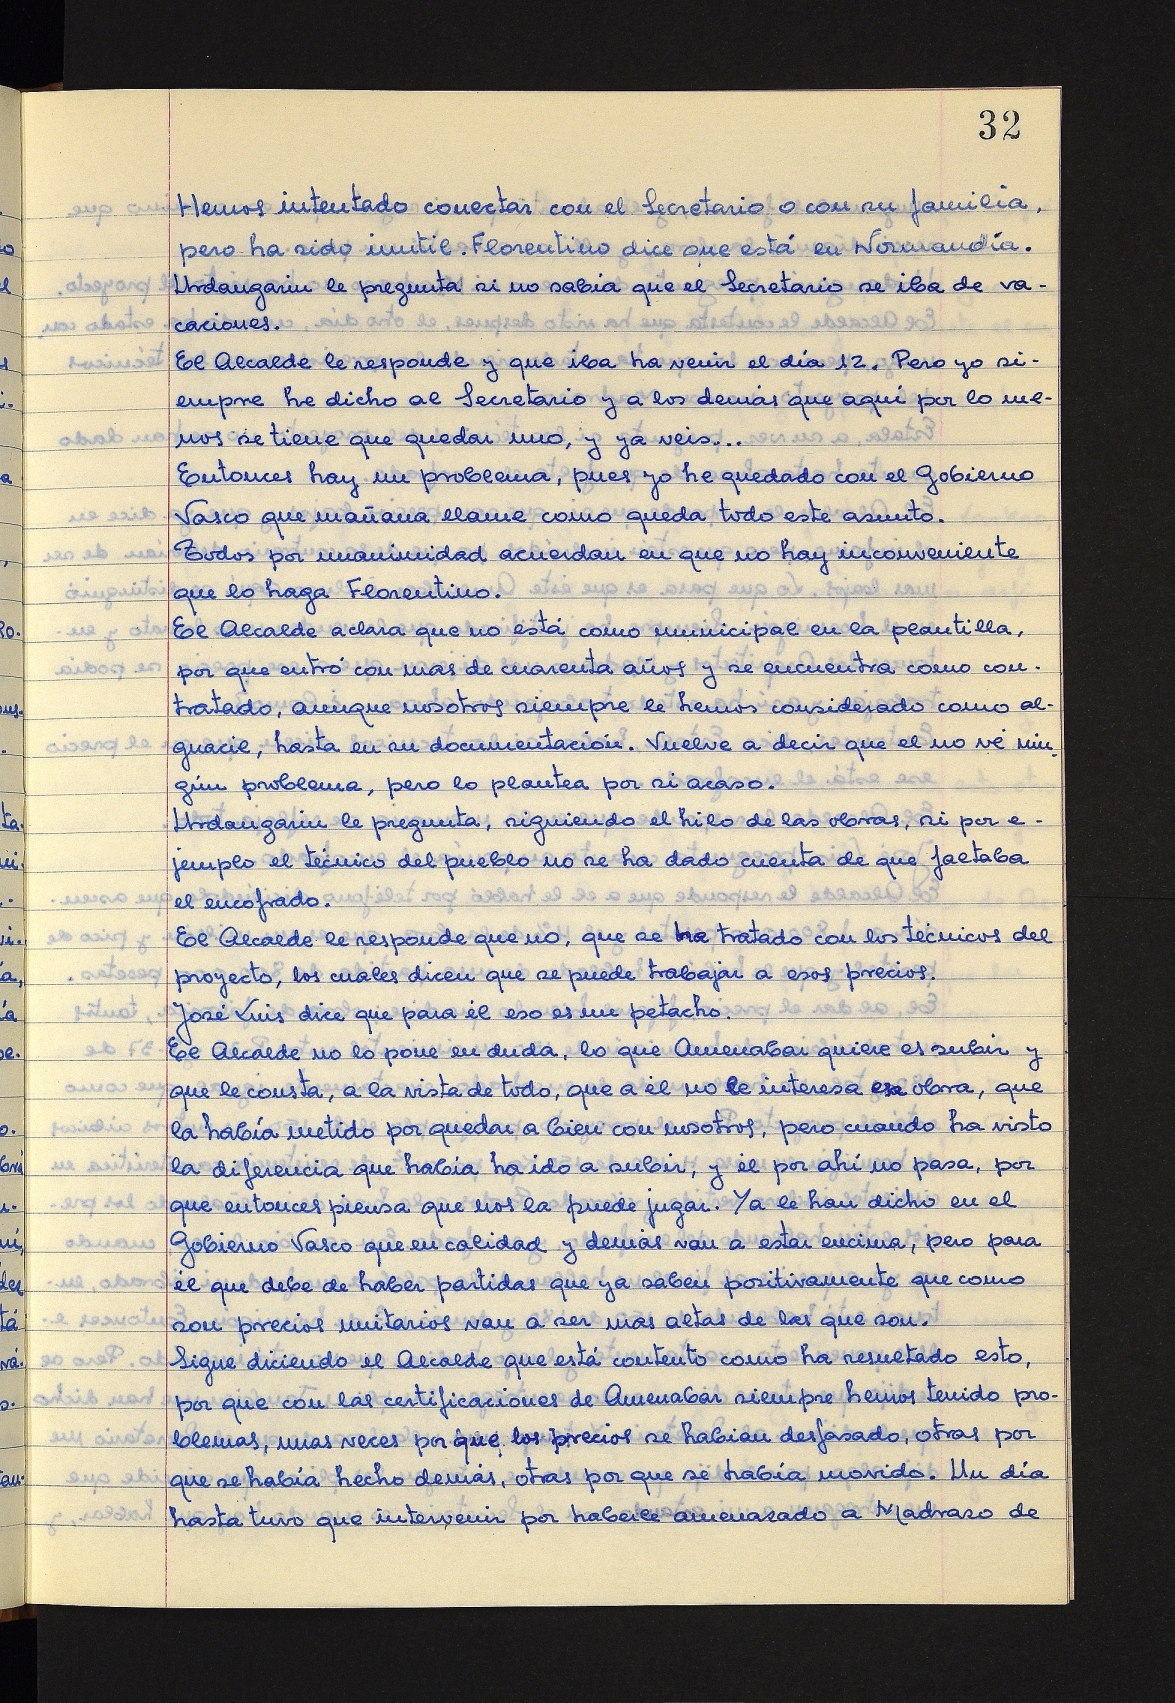 32
Hemos intentado conectar con el Secretario o con su familia,
pero ha sido inutil. Florentino dice que está en Normandía.
Urdangarin le pregunta si no sabia que el Secretario se iba de va-
caciones.
El Alcalde le responde y que iba ha venir el día 12. Pero yo si-
empre he dicho al Secretario y a los demás que aquí por lo me-
nos se tiene que quedar uno, y ya veis...
Entonces hay un problema, pues yo he quedado con el Gobierno
Vasco que mañana llame como queda todo este asunto.
Todos por unanimidad acuerdan en que no hay inconveniente
que lo haga Florentino.
El Alcalde aclara que no está como municipal en la plantilla,
por que entró con mas de cuarenta años y se encuentra como con-
tratado, aunque nosotros siempre le hemos considerado como al-
guacil, hasta en su documentación. Vuelve a decir que el no vé nin-
gún problema, pero lo plantea por si acaso.
Urdangarin le pregunta, siguiendo el hilo de las obras, si por e-
jemplo el técnico del pueblo no se ha dado cuenta de que faltaba
el encofrado.
El Alcalde le responde que no, que se ha tratado con los técnicos del
proyecto, los cuales dicen que se puede trabajar a esos precios.
José Luis dice que para él eso es un petacho.
El Alcalde no lo pone en duda, lo que Amenabar quiere es subir y
que le consta, a la vista de todo, que a él no le interesa esa obra, que
la había metido por quedar a bien con nosotros, pero cuando ha visto
la diferencia que había ha ido a subir, y él por ahí no pasa, por
que entonces piensa que nos la puede jugar. Ya le han dicho en el
Gobierno Vasco que en calidad y demás van a estar encima, pero para
él que debe de haber partidas que ya saben positivamente que como
son precios unitarios van a ser mas altas de las que son.
Sigue diciendo el Alcalde que está contento como ha resultado esto,
por que con las certificaciones de Amenabar siempre hemos tenido pro-
blemas, unas veces por que los precios se habían desfasado, otras por
que se había hecho demás, otras por que se había movido. Un día
hasta tuvo que intervenir por haberle amenazado a Madrazo de